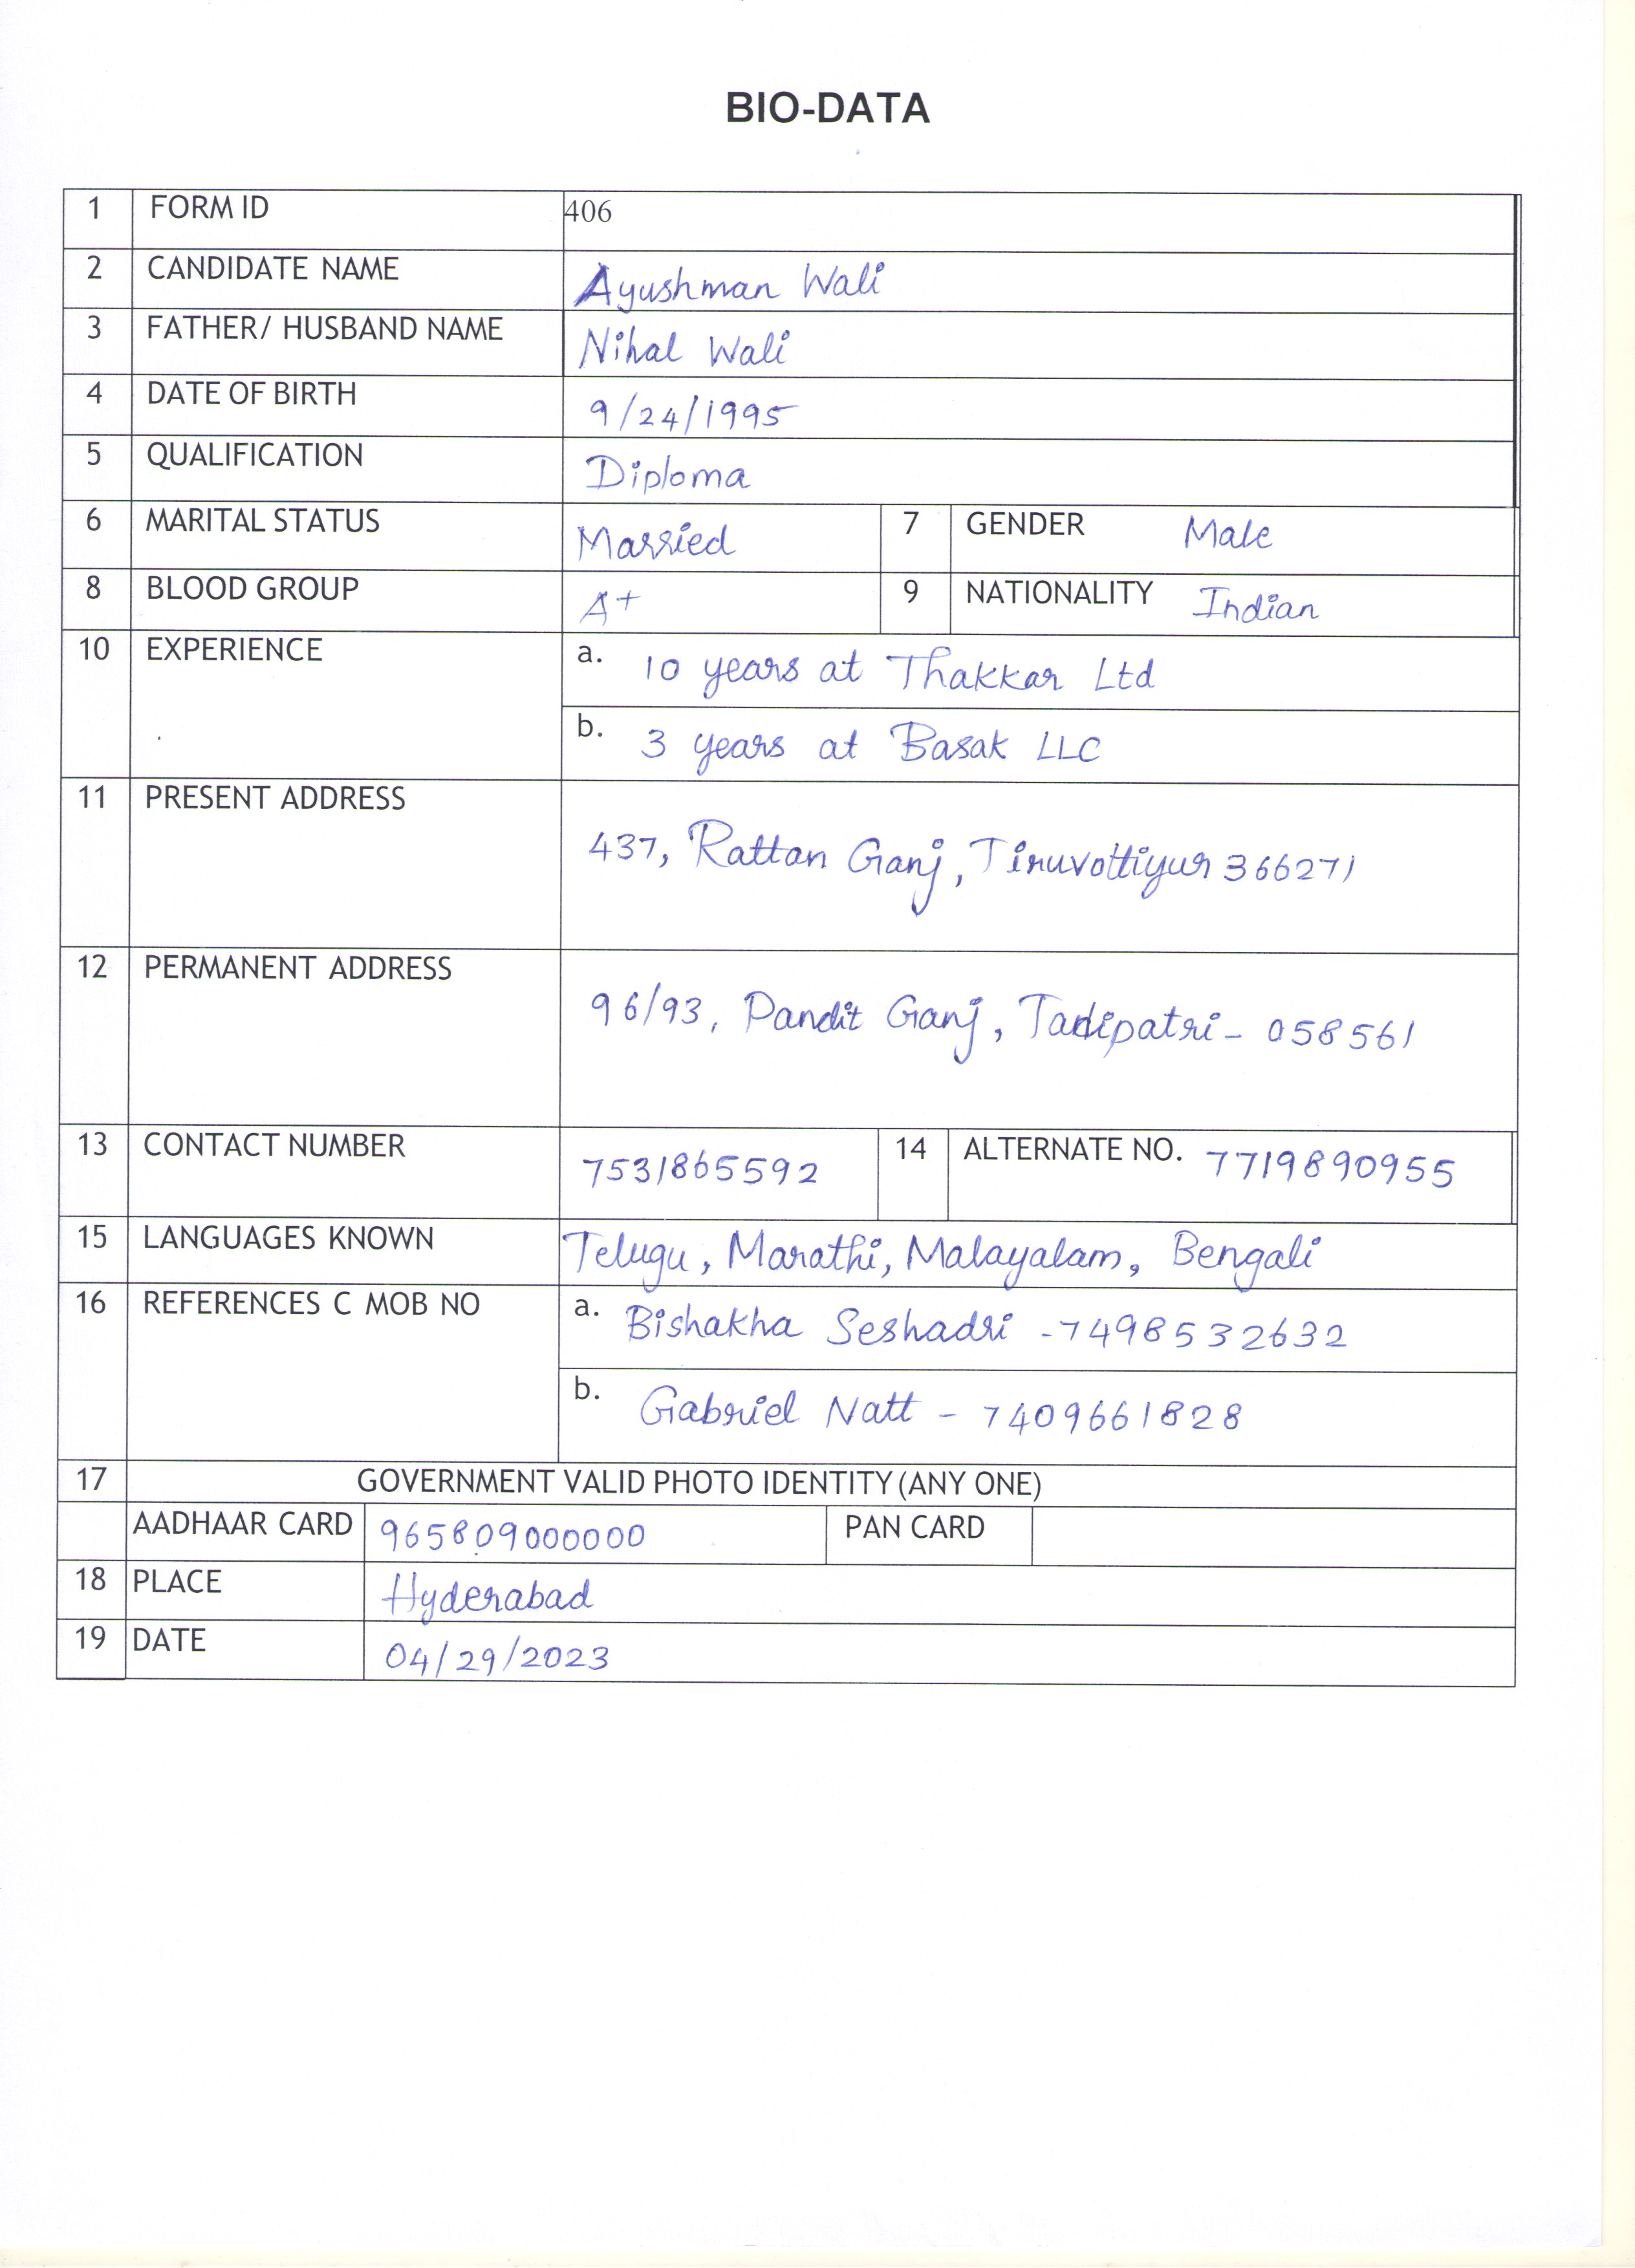 BIO-DATA
1 FORM ID 406
2 CANDIDATE NAME Ayushman Wali
3 FATHER/ HUSBAND NAME Nihal Wali
4 DATE OF BIRTH 9/24/1995
5 QUALIFICATION Diploma
6 MARITAL STATUS Married 7 GENDER Male
8 BLOOD GROUP A+ 9 NATIONALITY Indian
10 EXPERIENCE a. 10 years at Thakkar Ltd
b. 3 years at Basak LLC
11 PRESENT ADDRESS
437, Rattan Ganj, Tiruvottiyur 366271
12 PERMANENT ADDRESS
96/93, Pandit Ganj, Tadipatri - 058561
13 CONTACT NUMBER 7531865592 14 ALTERNATE NO. 7719890955
15 LANGUAGES KNOWN Telugu, Marathi, Malayalam, Bengali
16 REFERENCES C MOB NO a. Bishakha Seshadri - 7498532632
b. Gabriel Natt - 7409661828
17 GOVERNMENT VALID PHOTO IDENTITY (ANY ONE)
AADHAAR CARD 965809000000 PAN CARD
18 PLACE Hyderabad
19 DATE 04/29/2023